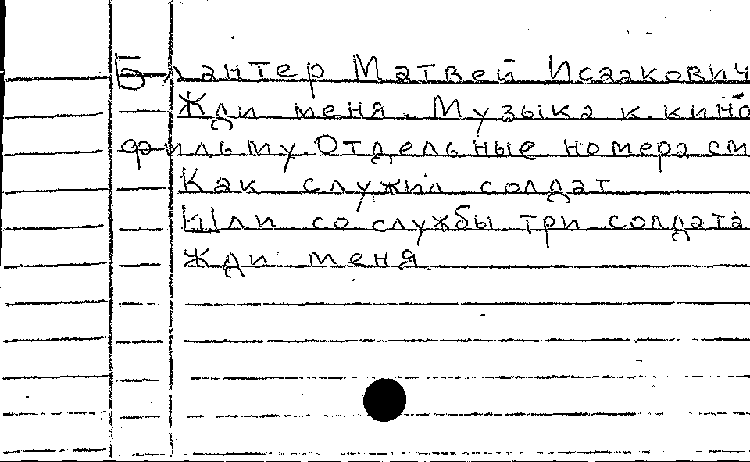 Блантер Матвей Исаакович
Жди меня. Музыка к кино
фильму. Отдельные номера см
Как служил солдат
Шли со службы три солдата
Жди меня